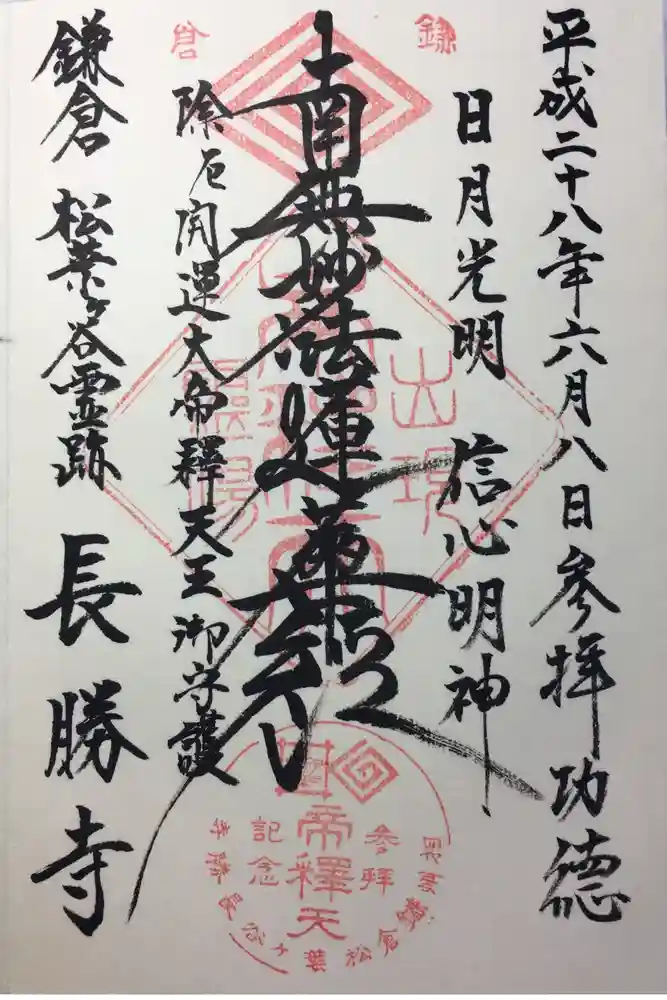 平成二十八年六月八日参拝功徳
日月光明 信心明神
南無妙法蓮華経
除厄開運大帝釋天王御守護
鎌倉 松葉ヶ谷霊跡 長勝寺
鎌倉
出現
霊場
参拝
帝釋天
記念
鎌倉松葉ヶ谷長勝寺